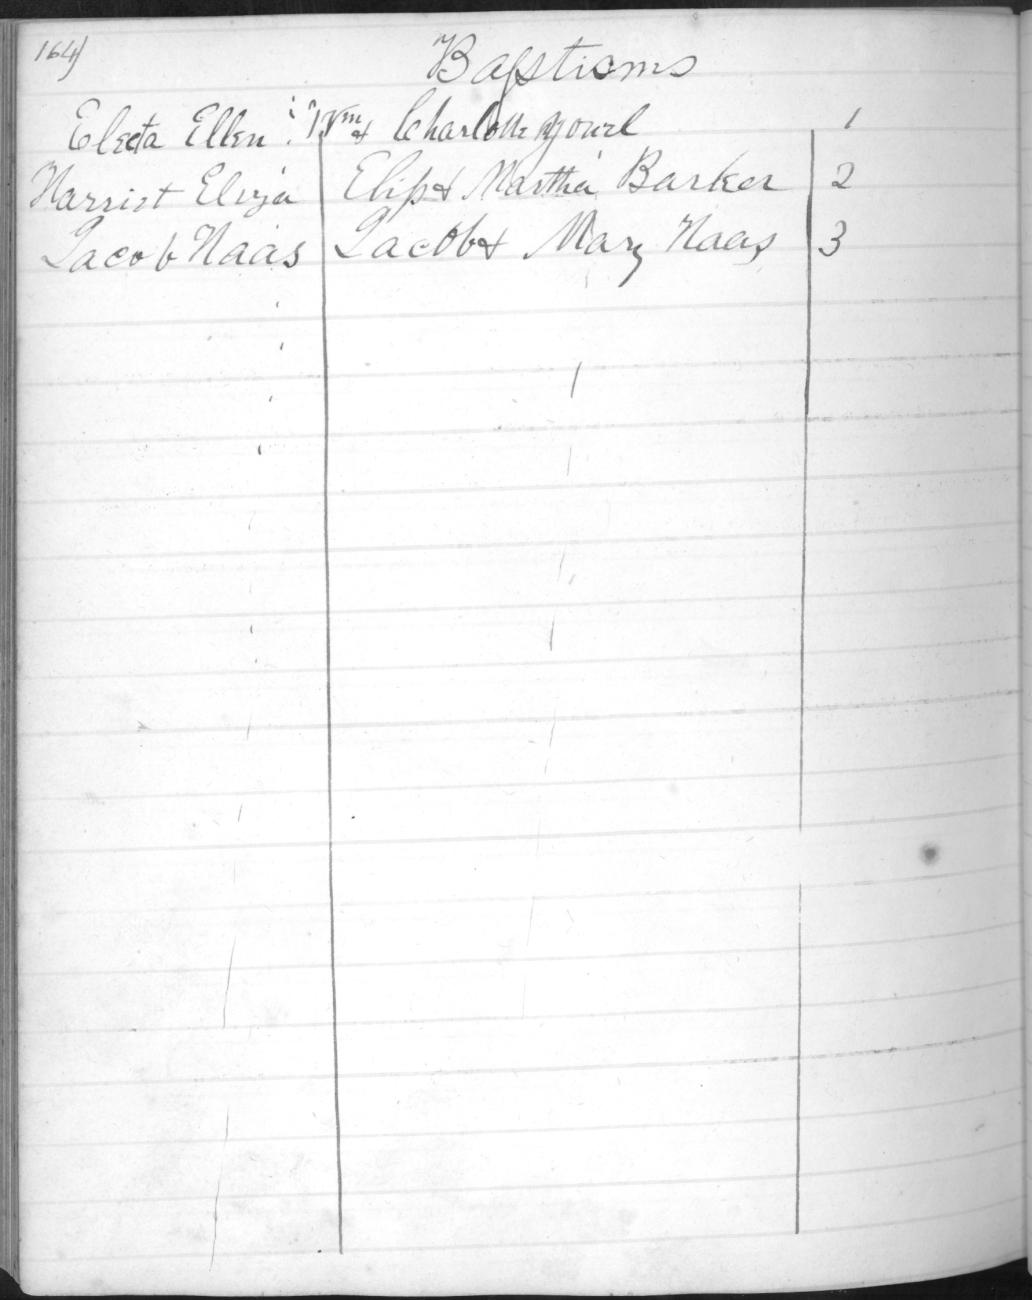 164)
Baptisms
Electa Ellen Wm & Charlotte Yowel 1
Harriet Eliza & Martha Barker 2
Jacob Haas Jacob & Mary Haas 3